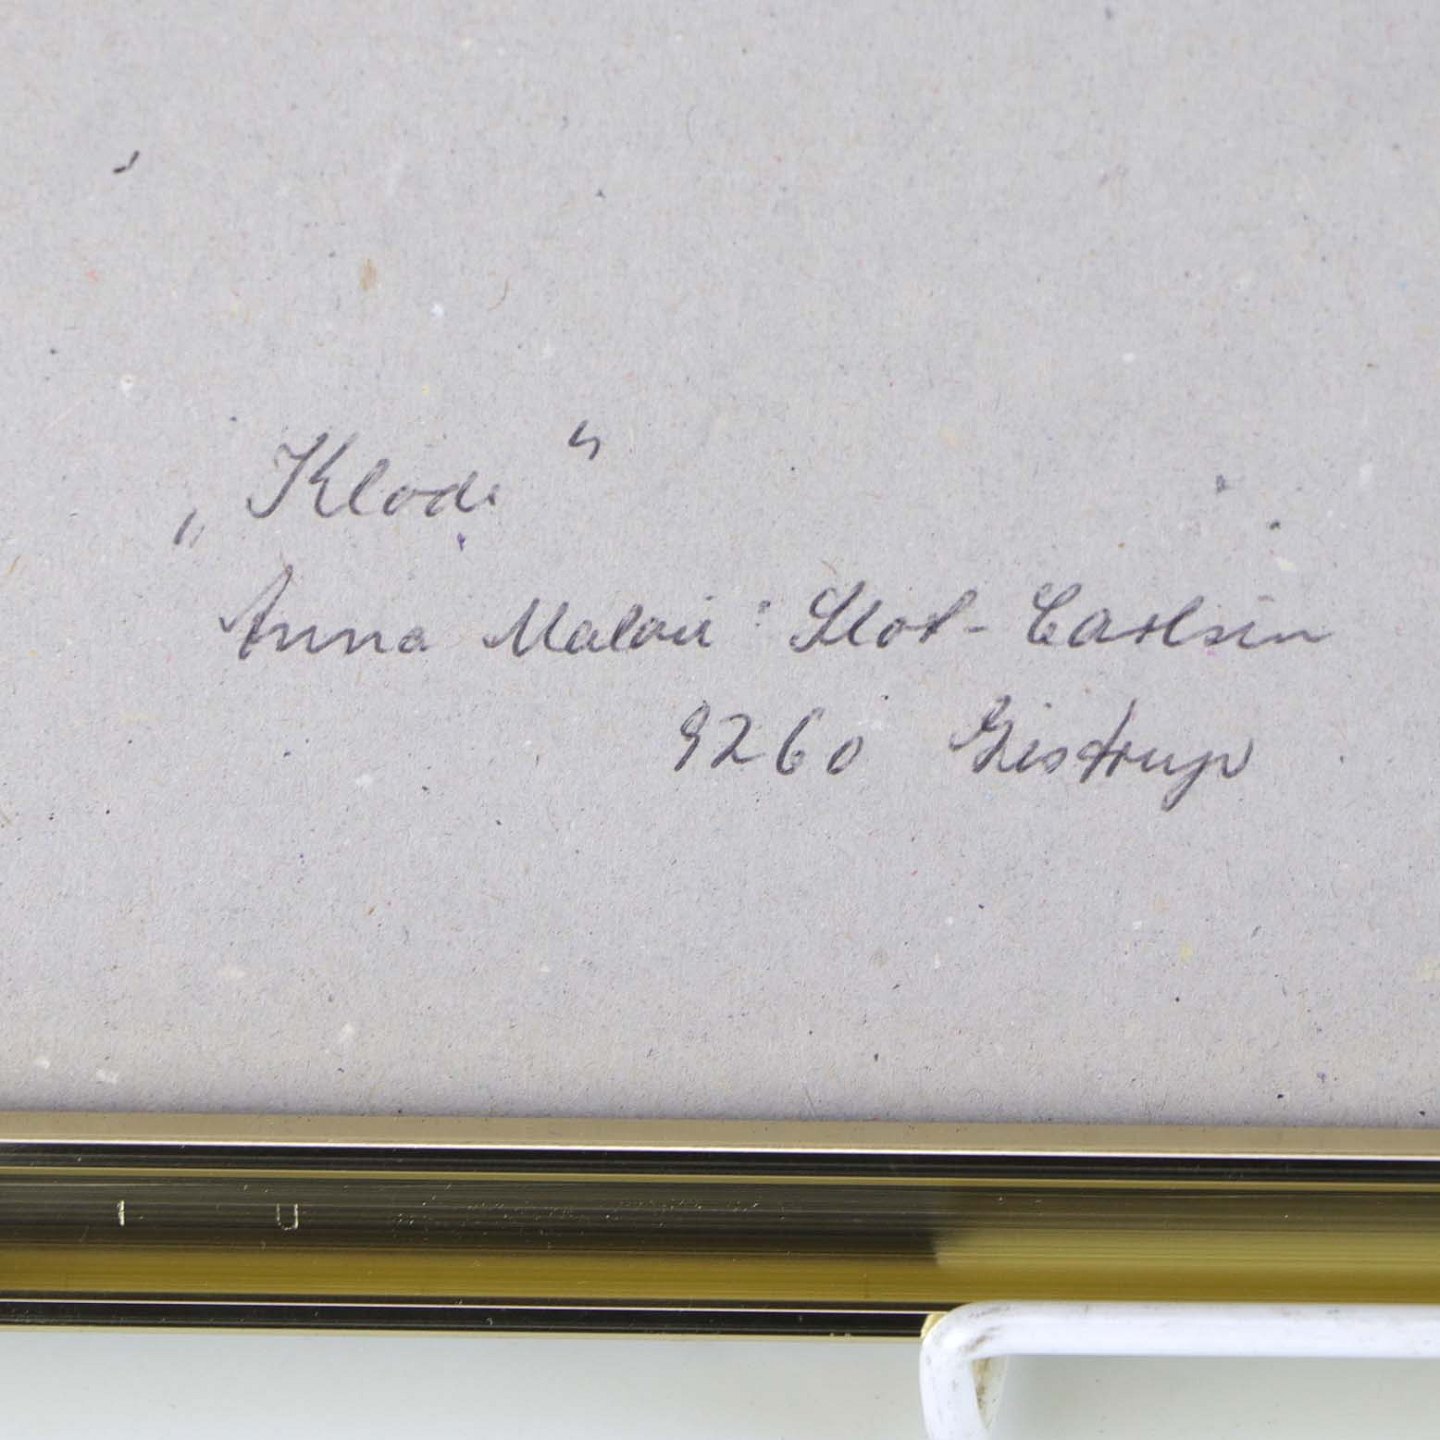 „Klode"
Anna Malair Slot-Carlsen
9260 Gistrup